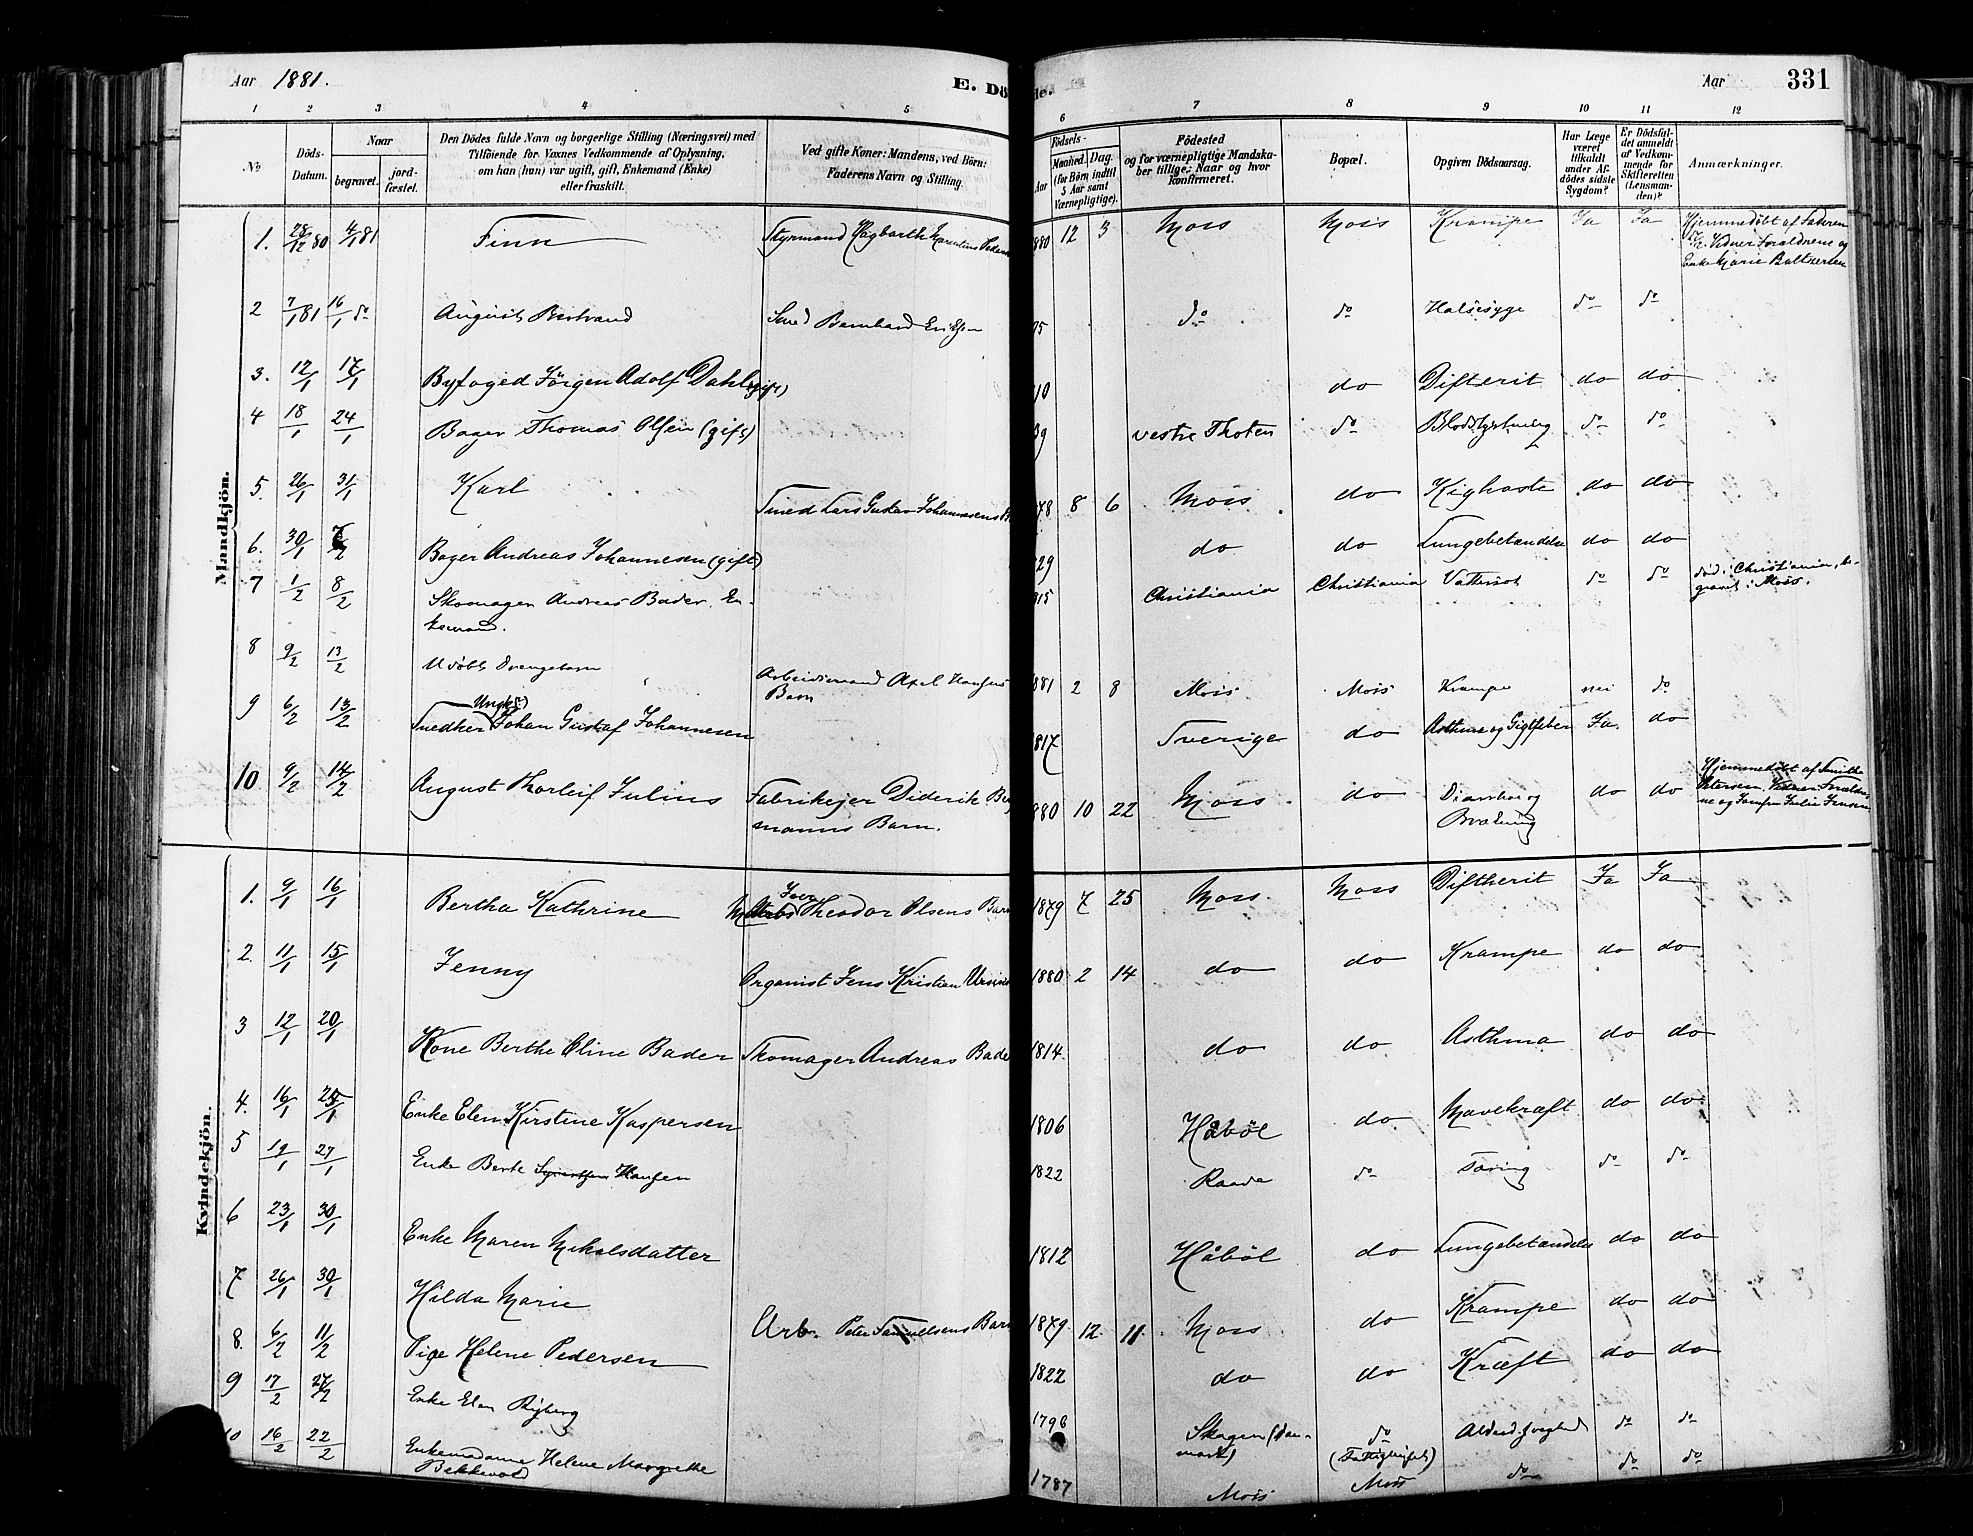 Aar 1881.
E. Dö
de.
Aar
331
1 2 3 4 5 6 7 8 9 10 11 12
No
Döds-
Datum.
Naar
begravet.
jord-
fæstet.
Den Dödes fulde Navn og borgerlige Stilling (Næringsvei) med
Tilföiende for Voxnes Vedkommende af Oplysning,
om han (hun) var ugift, gift, Enkemand (Enke)
eller fraskilt.
Ved gifte Koner: Mandens, ved Börn:
Faderens Navn og Stilling.
Födsels-
Aar
Maaned. Dag.
(for Börn indtil
5 Aar samt
Værnepligtige).
Födested
og for værnepligtige Mandska-
ber tillige: Naar og hvor
konfirmeret.
Bopæl.
Opgiven Dödsaarsag.
Har Læge
været
tilkaldt
under Af-
dödes sidste
Sygdom?
Er Dödsfal-
det anmeldt
af Vedkom-
mende for
Skifteretten
(Lensman-
den)?
Anmærkninger.
Mandkjön.
1. 28/12 80 4/1 81 Finn Styrmand Hagbarth 880 12 3 Moss Moss Krampe Ja Ja Hjemmedøbt af Faderen
Vidner Forældrene og
Enke Marie
2 7/1 81 16/1 do August Bertrand Smed Bernhard Eriksen 75 do do Halssyge do do
3. 12/1 17/1 Byfoged Jörgen Adolf Dahl (gift) 10 do Difterit do do
4 18/1 24/1 Bager Thomas Olsen (gift) 39 vestre Thoten do Blodstyrtning do do
5. 26/1 31/1 Karl Smed Lars Gustav Johannesens 878 8 6 Moss do Kighoste do do
6. 30/1 Bager Andreas Johannesen (gift) 829 do do Lungebetændelse do do
7 1/2 8/2 Skomager Andreas Bader. En-
kemand. 815 Christiania Christiania Vattersot do do død i Christiania, be-
gravet i Moss.
8 9/2 13/2 Udöbt Drengebarn Arbeidsmand Axel Hansens
Barn 881 2 8 Moss Moss Krampe nei do
9 6/2 13/2 Snedker Johan Gustaf Johannesen 817 Sverige do Asthma og Gigtfeber Ja. do
10 9/2 14/2 August Thorleif Julius Fabrikejer Diderik
manns Barn. 880 10 22 Moss do Diarrhoe og
Brækning do do Hjemmedøbt af
Petersen, Vidner Forældre-
ne og Julie Jensen
Kvindekjön.
1. 9/1 16/1 Bertha Kathrine Theodor Olsens Barn 1879 7 25 Moss Moss Diftherit Ja Ja
2. 11/1 15/1 Jenny Organist Jens Kristian 1880 2 14 do do Krampe do do
3 12/1 20/1 Kone Berthe Oline Bader Skomager Andreas Bade 1814. do do Asthma do do
4. 16/1 25/1 Enke Elen Kirstine Kaspersen 1806 Håböl do Mavekræft do do
5 19/1 27/1 Enke Berte Hansen 1822 Raade do Tæring do do
6 23/1 30/1 Enke Maren Nikolsdatter 1812 Håböl do Lungebetændelse do do
7 26/1 30/1 Hilda Marie Arb. Peter Samuelsens Barn 1879. 12. 11. Moss do Krampe do do
8. 6/2 11/2 Pige Helene Pedersen 1822 do do Kræft do do
9 17/2 27/2 Enke Elen Ryberg 1796 Skagen (Dan-
mark) do
(Fattighuset) Alderdomssvaghed do do
10 16/2 22/2 Enkemadame Helene Margrethe
Bekkevold 1787 Moss Moss do do do